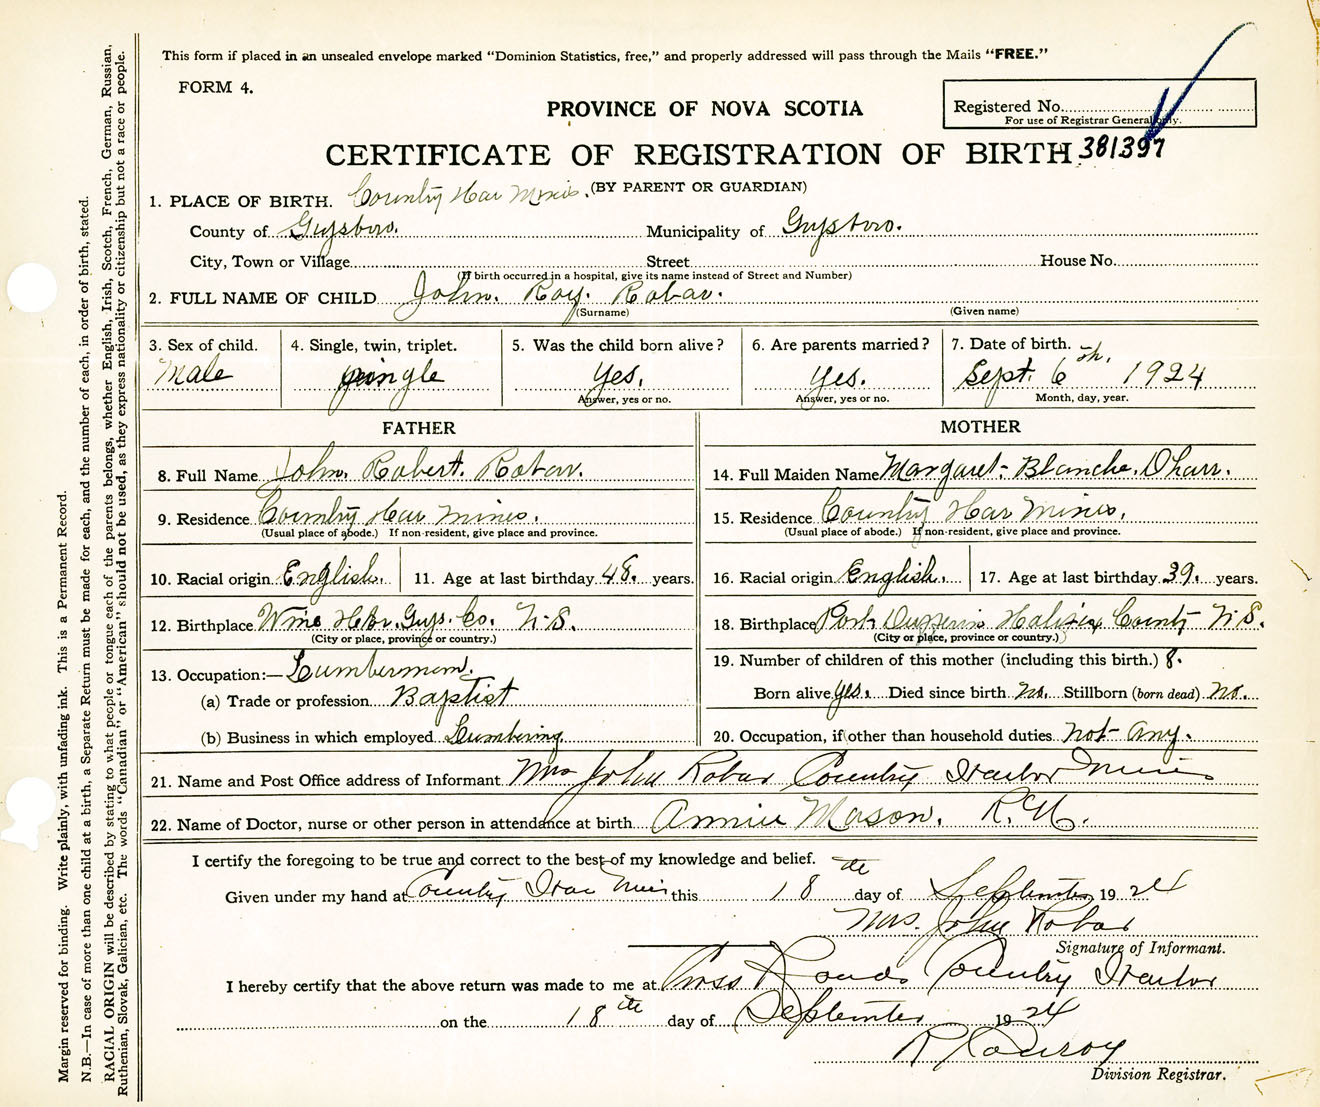 This form if placed in an unsealed envelope marked “Dominion Statistics, free,” and properly addressed will pass through the Mails “FREE.”
FORM 4.
PROVINCE OF NOVA SCOTIA
Registered No.
For use of Registrar General only.
CERTIFICATE OF REGISTRATION OF BIRTH 381397
(BY PARENT OR GUARDIAN)
1. PLACE OF BIRTH. Country Har Mines.
County of Guysboro. Municipality of Guysboro.
City, Town or Village Street House No.
(If birth occurred in a hospital, give its name instead of Street and Number)
2. FULL NAME OF CHILD John. Roy. Robar.
(Surname) (Given name)
3. Sex of child. 4. Single, twin, triplet. 5. Was the child born alive? 6. Are parents married? 7. Date of birth.
Male single Yes. Yes. Sept. 6th. 1924
Answer, yes or no. Answer, yes or no. Month, day, year.
FATHER MOTHER
8. Full Name John. Robert. Robar. 14. Full Maiden Name Margaret Blanche.
9. Residence Country Har Mines. 15. Residence Country Har Mines.
(Usual place of abode.) If non-resident, give place and province. (Usual place of abode.) If non-resident, give place and province.
10. Racial origin English. 11. Age at last birthday 48. years. 16. Racial origin English. 17. Age at last birthday 39. years.
12. Birthplace Wine Hbr. Guys. Co. N.S. 18. Birthplace Port Dufferin Halifax County N.S.
(City or place, province or country.) (City or place, province or country.)
13. Occupation:— Lumberman. 19. Number of children of this mother (including this birth.) 8.
(a) Trade or profession Baptist Born alive yes. Died since birth no. Stillborn (born dead) no.
(b) Business in which employed Lumbering. 20. Occupation, if other than household duties not any.
21. Name and Post Office address of Informant Mrs John Robar Country Harbor Mines
22. Name of Doctor, nurse or other person in attendance at birth Annie Mason. R.N.
I certify the foregoing to be true and correct to the best of my knowledge and belief.
Given under my hand at Country Har Mines this 18th day of September 1924
Mrs. John Robar
Signature of Informant.
I hereby certify that the above return was made to me at Cross Roads Country Harbor
on the 18th day of September 1924
Division Registrar.
Margin reserved for binding. Write plainly, with unfading ink. This is a Permanent Record.
N.B.—In case of more than one child at a birth, a Separate Return must be made for each, and the number of each, in order of birth, stated.
RACIAL ORIGIN will be described by stating to what people or tongue each of the parents belongs, whether English, Irish, Scotch, French, German, Russian,
Ruthenian, Slovak, Galician, etc. The words “Canadian” or “American” should not be used, as they express nationality or citizenship but not a race or people.